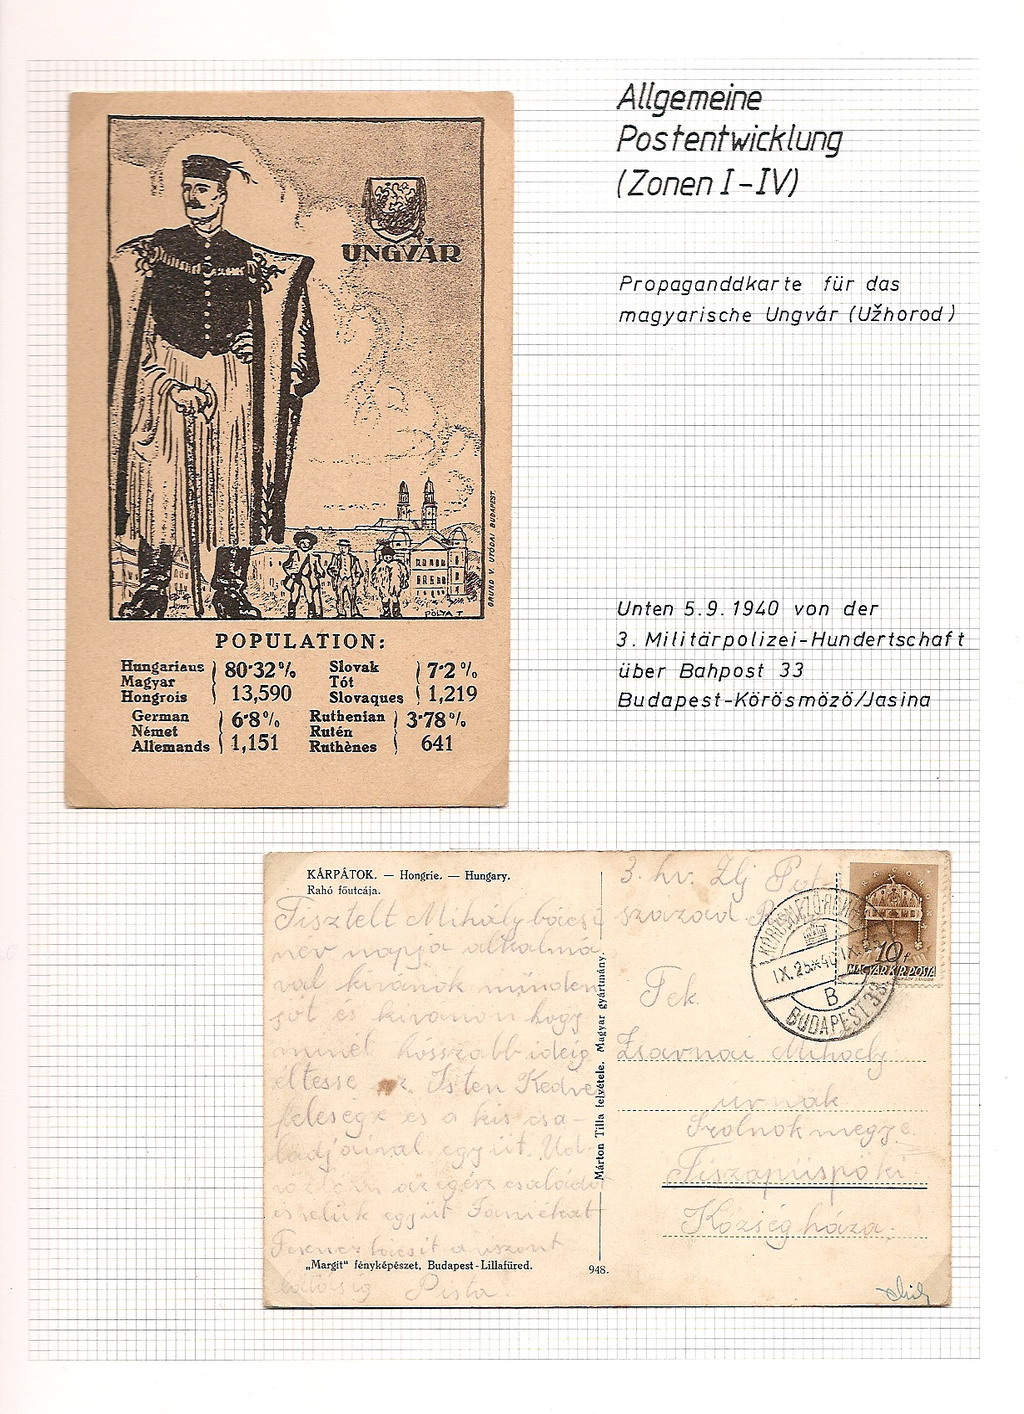 Allgemeine
Postentwicklung
(Zonen I-IV)
Propaganddkarte für das
magyarische Ungvár (Užhorod)
UNGVÁR
GRUND V. UTÓDAI BUDAPEST.
PÓLYA T.
POPULATION:
Hungarians
Magyar
Hongrois
80·32%
13,590
Slovak
Tót
Slovaques
7·2%
1,219
German
Német
Allemands
6·8%
1,151
Ruthenian
Rutén
Ruthènes
3·78%
641
Unten 5.9.1940 von der
3. Militärpolizei-Hundertschaft
über Bahpost 33
Budapest-Körösmözö/Jasina
KÁRPÁTOK. — Hongrie. — Hungary.
Rahó főutcája.
Tisztelt Mihály bácsi
név napja alkalmá
val kívánok minden
jót és kívánom hogy
minél hosszabb ideig
éltesse az Isten Kedves
feleség és a kis csa-
ládjaival együtt.
az egész családot
és velük együtt
Ferencz bácsit a viszont
látásig Pista.
„Margit" fényképészet, Budapest-Lillafüred.
948.
Márton Tilla felvétele. Magyar gyártmány.
3. hv. Zlj
század.
10f
MAGYAR KIR. POSTA
IX.25*40
B
BUDAPEST 33
Tek.
Zsarnai Mihály
urnak
Szolnok megye.
Tiszapüspöki
Községháza.